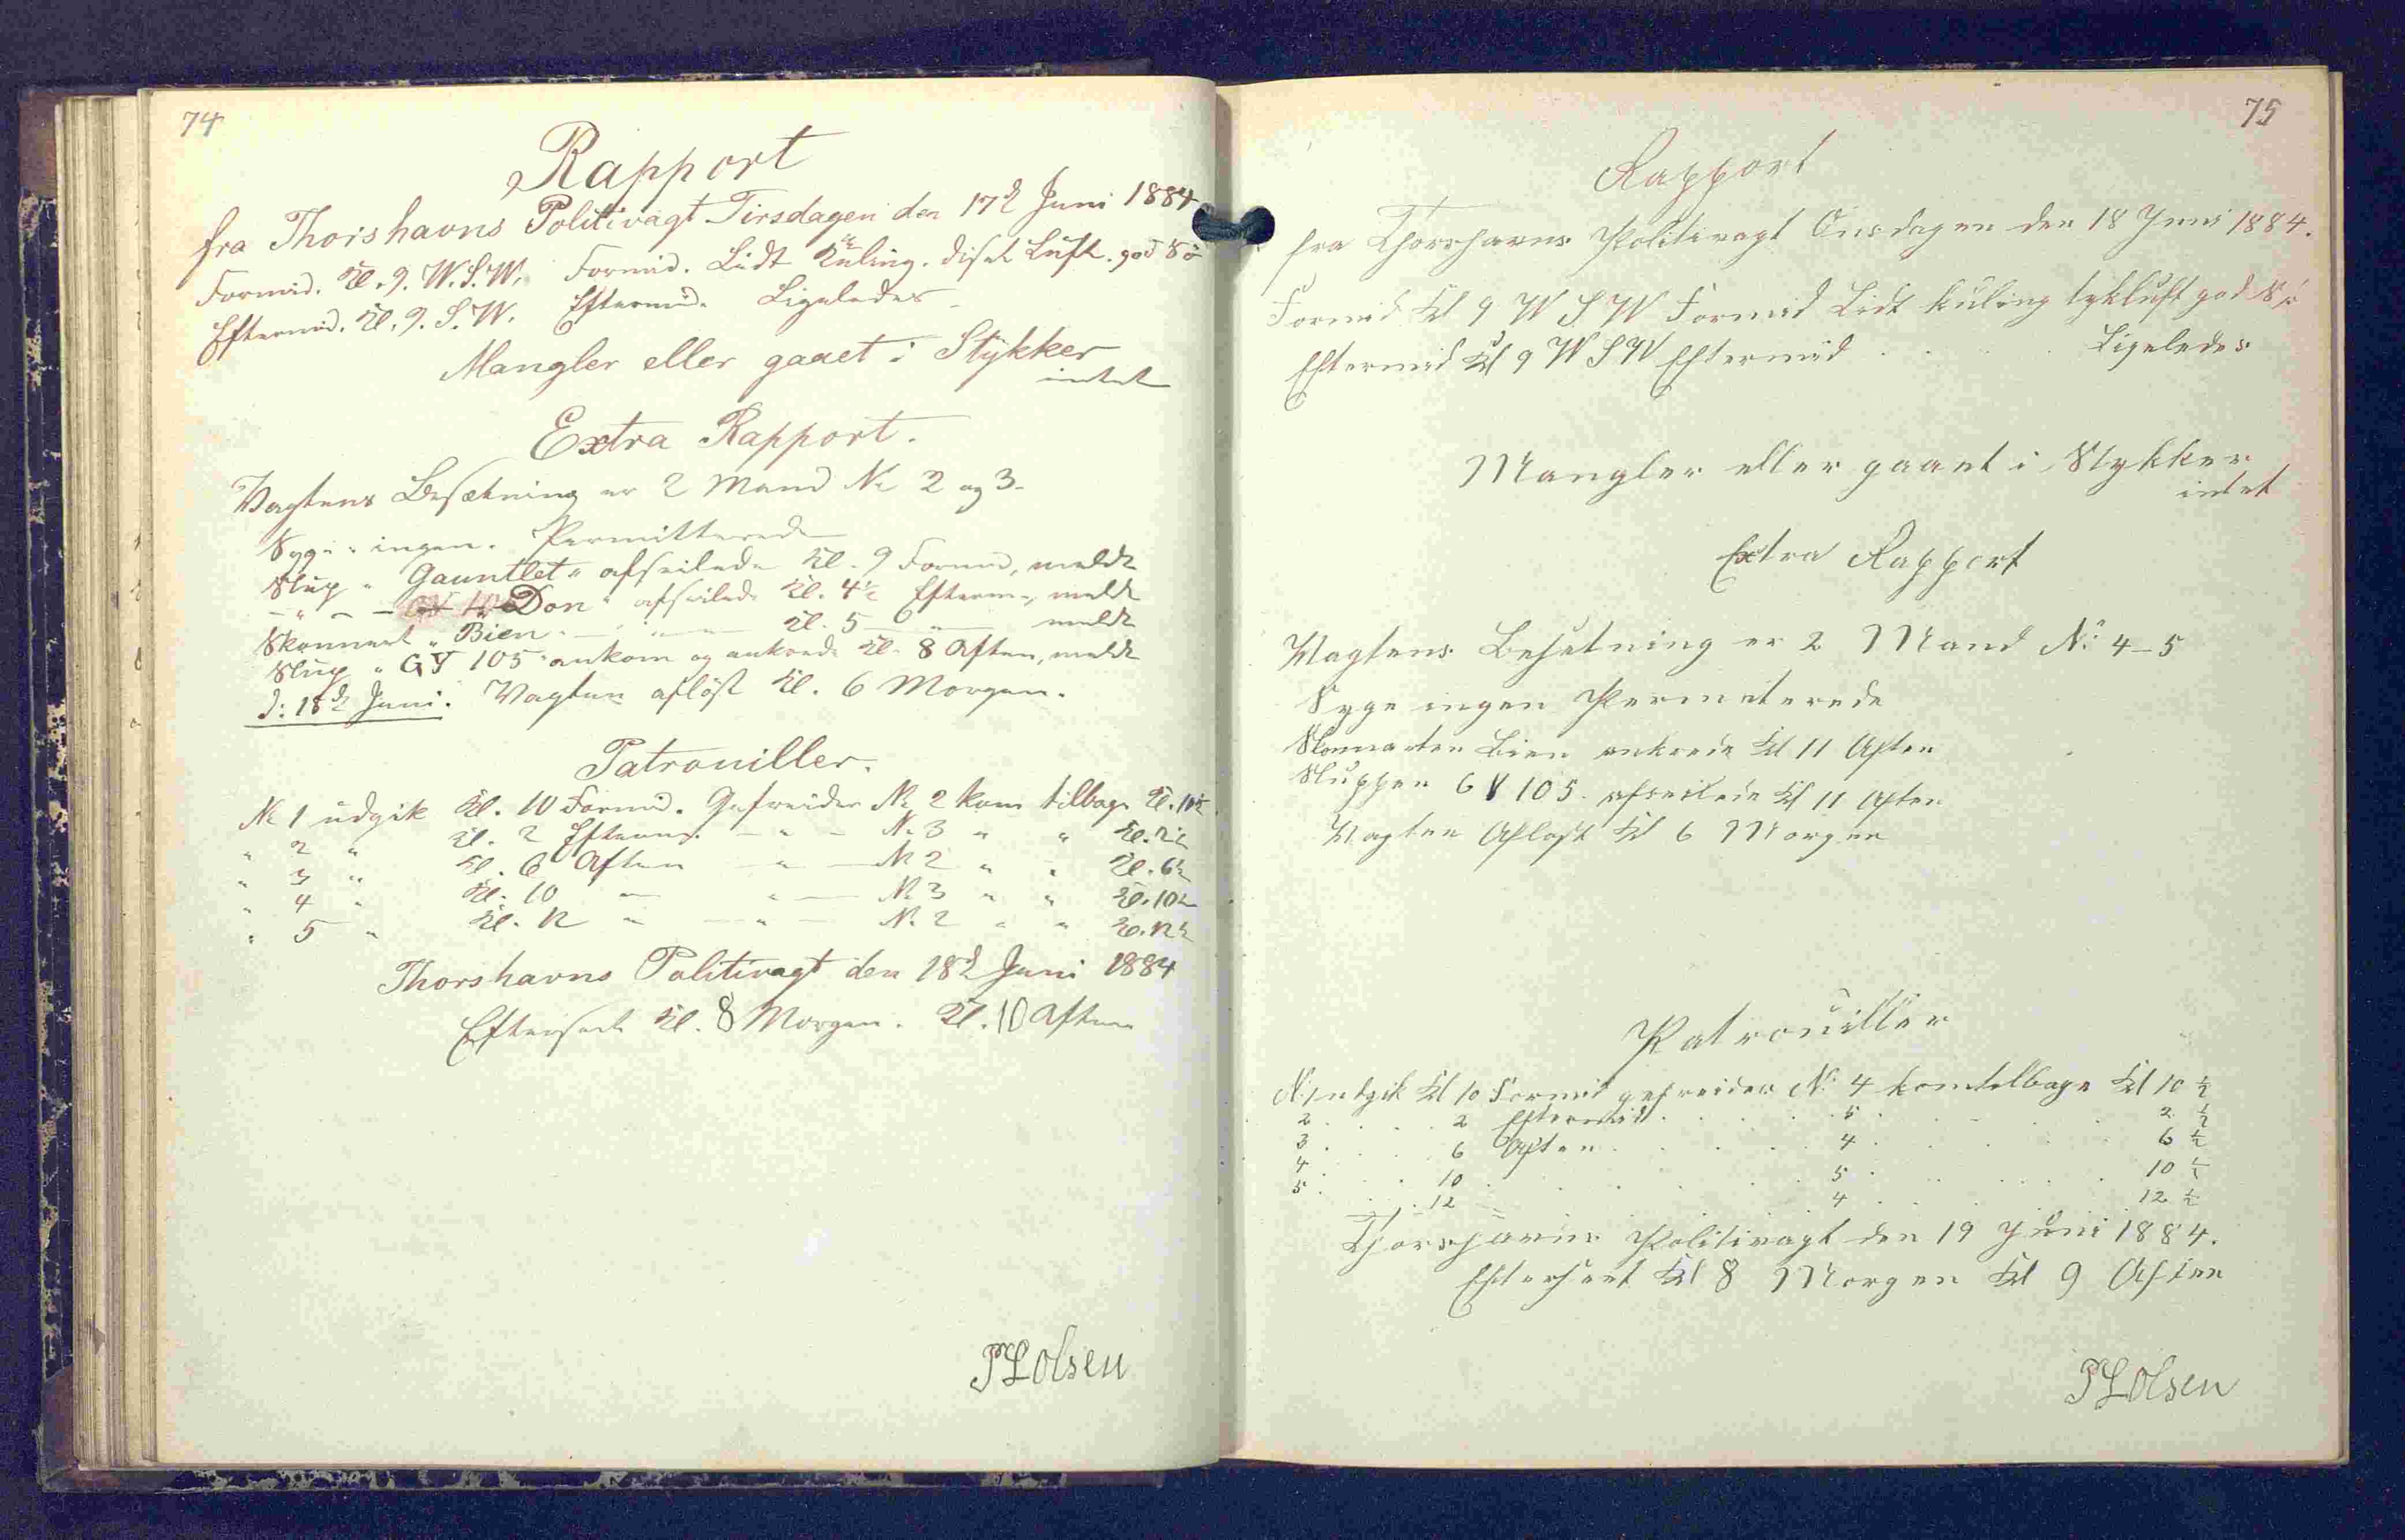 74
Rapport
fra Thorshavns Politivagt Tirsdagen den 17d Juni 1884
Formid. Kl. 9. W.S.W. Formid. Lidt Kuling. diset Luft. god Sö
Eftermid. Kl. 9. S.W. Eftermid. Ligeledes
Mangler eller gaaet i Stykker
intet
Extra Rapport.
Vagtens Besætning er 2 Mand No 2 og 3.
Syge: ingen. Permitterede
Slup "Gauntlet" afseilede Kl. 9 Formid, meldt
" Don" afseilede Kl. 4½ Efterm., meldt
Skonnert "Bien" — " — Kl. 5 — " — meldt
Slup "GY 105" ankom og ankrede Kl. 8 Aften, meldt
d: 18d Juni. Vagten aflöst Kl. 6 Morgen.
Patrouiller.
No 1 udgik Kl. 10 Formid. Gefreider No 2 kom tilbage Kl. 10½
" 2 " Kl. 2 Efterm. — " — No 3 " " Kl. 2½
" 3 " Kl. 6 Aften — " — No 2 " " Kl. 6½
" 4 " Kl. 10 — " — No 3 " " Kl. 10½
" 5 " Kl. 12 " — " — No. 2 " " Kl. 12½
Thorshavns Politivagt den 18d Juni 1884
Efterseet Kl. 8 Morgen. Kl. 10 Aften
PLOlsen
75
Rapport
fra Thorshavns Politivagt Onsdagen den 18 Juni 1884.
Formid Kl 9 W S W Formid Lidt kuling tykluft god Sö
Eftermid Kl 9 W S W Eftermid . . . . Ligeledes
Mangler eller gaaet i Stykker
intet
Extra Rapport
Vagtens Besetning er 2 Mand No 4–5
Syge ingen Permeterede
Skonnarten Bien ankrede Kl 11 Aften
Sluppen GY 105. afseilede Kl 11 Aften
Vagten Aflöst Kl 6 Morgen
Patrouiller
No 1 udgik Kl 10 Formid gefreider No 4 komtilbage Kl 10 ½
2 . . . . 2 Eftermid . . . . 5 . . . . 2 ½
3 . . . . 6 Aften . . . . 4 . . . . 6 ½
4 . . . . 10 . . . . 5 . . . . 10 ½
5 . . . . 12 . . . . 4 . . . . 12 ½
Thorshavns Politivagt den 19 Juni 1884.
Efterseet Kl 8 Morgen Kl 9 Aften
PLOlsen